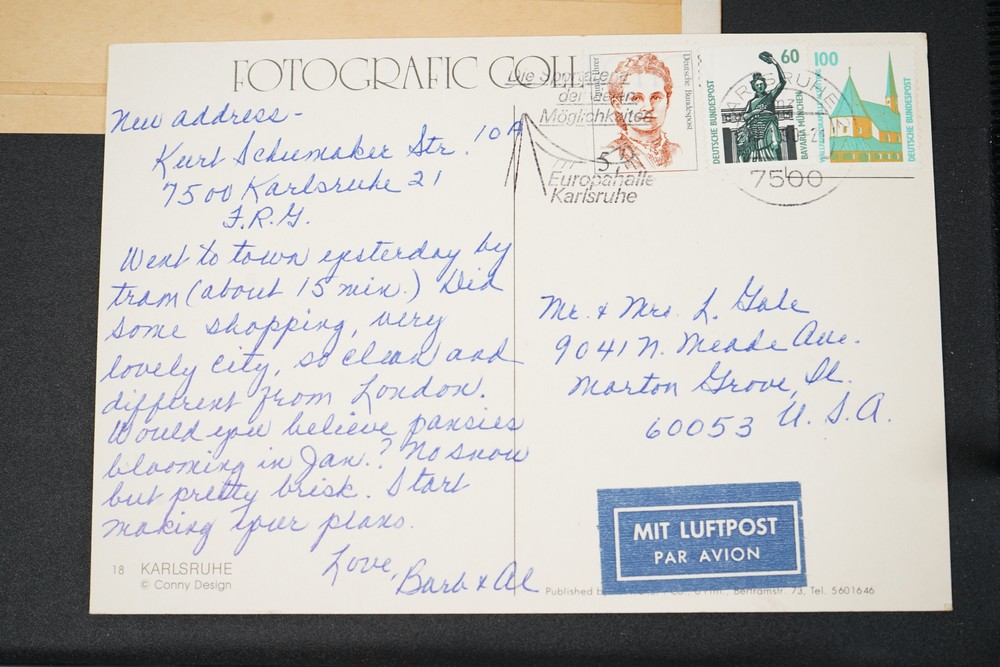 FOTOGRAFIC COLL
New address -
Kurt Schumaker Str. 10A
7500 Karlsruhe 21
F.R.G.
Went to town yesterday by
tram (about 15 min.) Did
some shopping, very
lovely city, so clean and
different from London.
Would you believe pansies
blooming in Jan.? No snow
but pretty brisk. Start
making your plans.
Love,
Barb & Al
18 KARLSRUHE
© Conny Design
Die
der
Möglichkeiten
Europahalle
Karlsruhe
Deutsche Bundespost
60
DEUTSCHE BUNDESPOST
BAVARIA MÜNCHEN
100
DEUTSCHE BUNDESPOST
KARLSRUHE
7500
Mr. & Mrs. L. Gale
9041 N. Meade Ave.
Morton Grove, Il.
60053 U.S.A.
MIT LUFTPOST
PAR AVION
Published Bertramstr. 73, Tel. 5601646